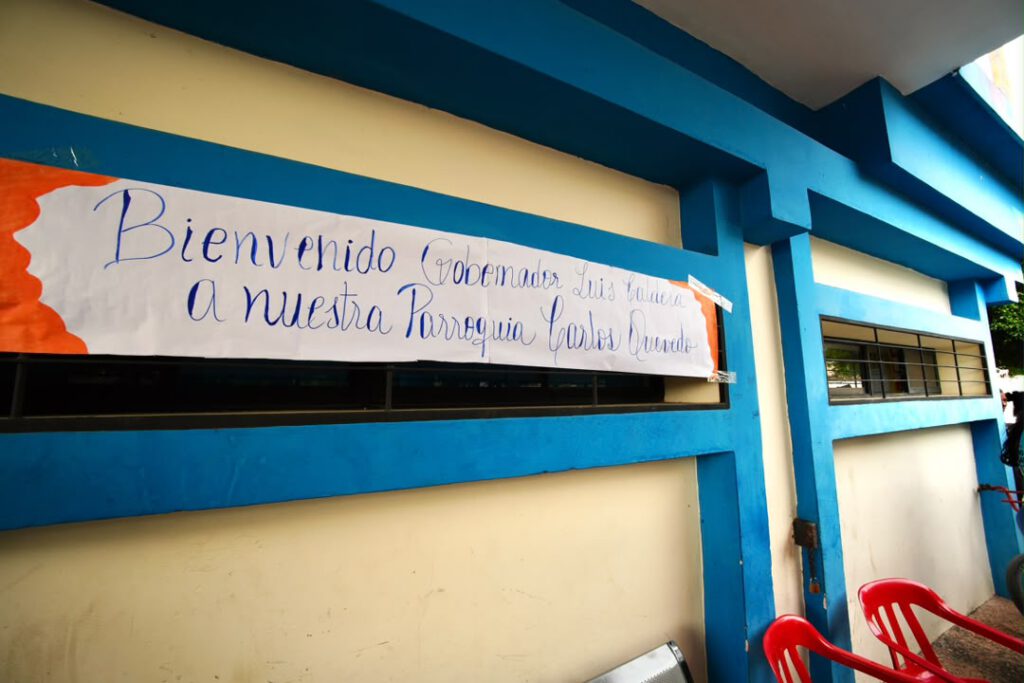 Bienvenido Gobernador Luis Caldera
a nuestra Parroquia Carlos Quevedo